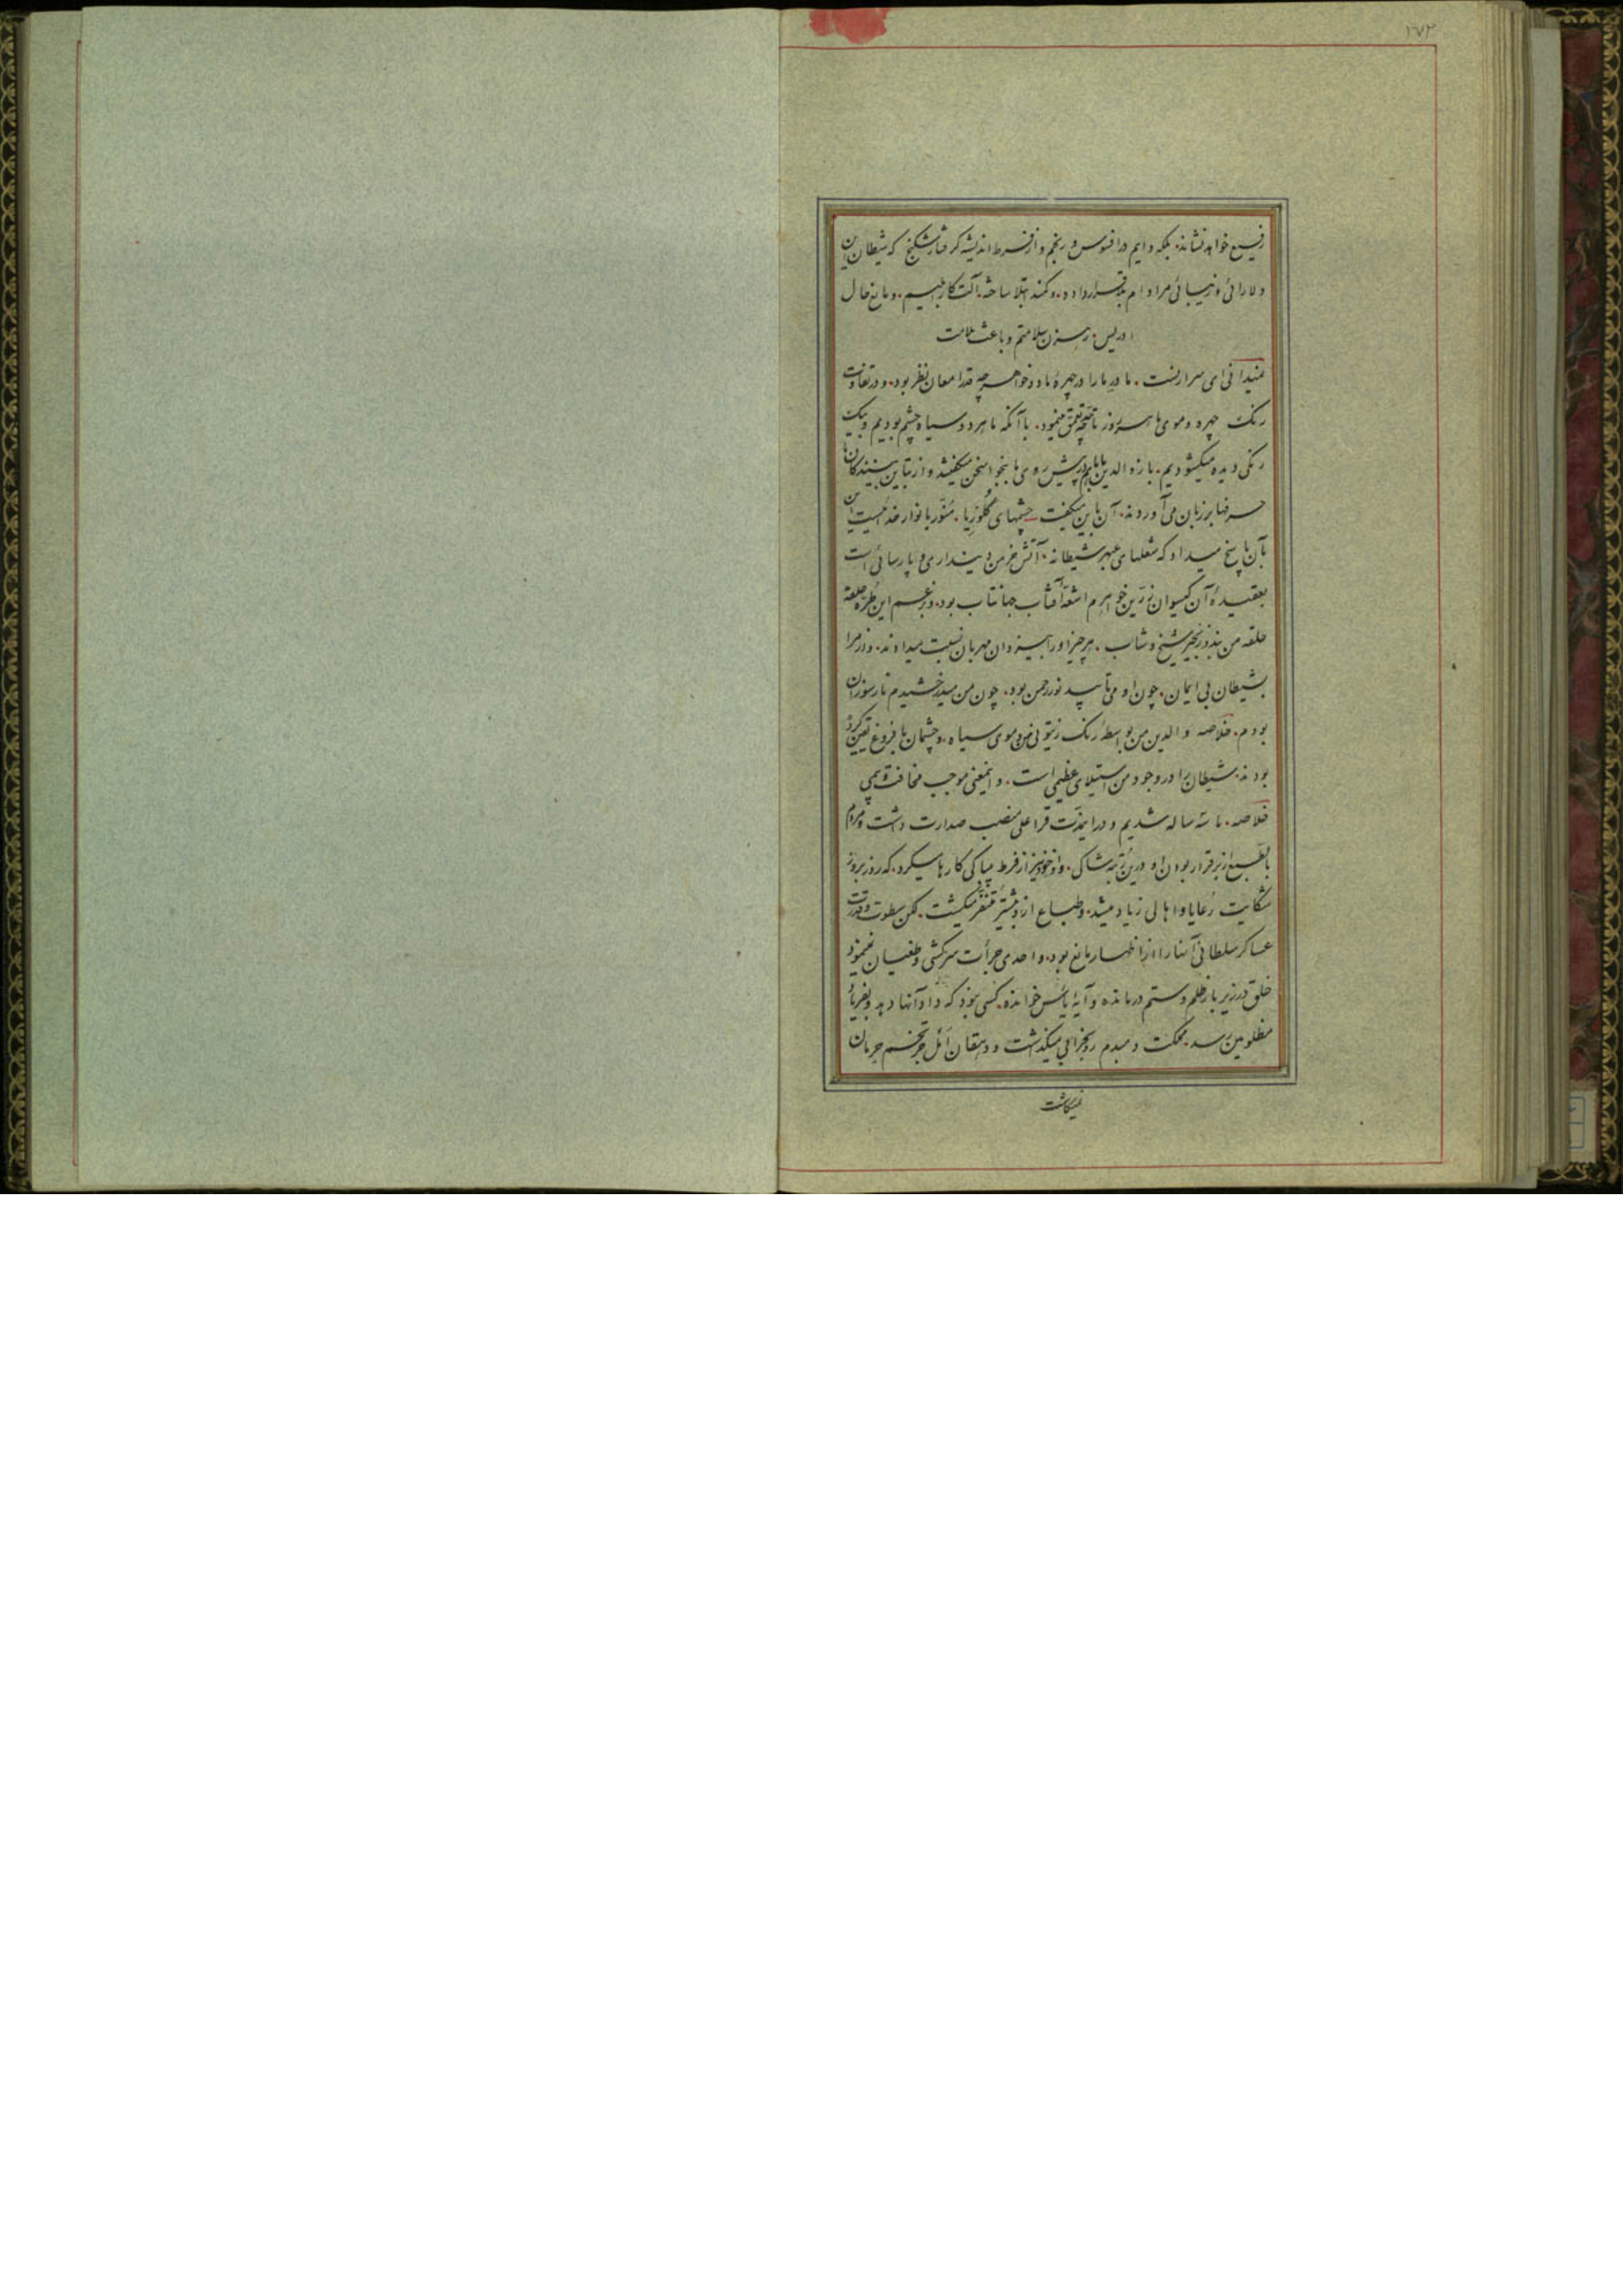 ۱۷۲
رفیع خواهد نشاند. بلکه دایم در افسوس و رنجم و از فرط اندیشه گرفتار شکنج که شیطان این
دلارائی و زیبائی مرا دام قرار داده. و کمند ابتلا ساخته. آلت کار ابلیسم. و مانع حال
ادریس. رهزن سلامتم و باعث ملامت
نمیدانی ای سرارنست. مادر ما را در چهرهٔ ما دو خواهر چه قدر امعان نظر بود. و در تفاوت
رنک چهره و موی ما هر روز تعمق مینمود. با آنکه ما هر دو سیاه چشم بودیم و بیک
رنکی دیده میکشودیم. باز والدین ما پیش روی ما سخن میکفتند و از تباین بینندکان ما
حرفها بر زبان می آوردند. آن باین میکفت چشمهای کلوریا. منور بانوار خداست این
بآن پاسخ میداد که شعلهای شیطانه. آتش خرمن دینداری و پارسائی است
بعقیدهٔ آن کیسوان زرین خواهرم اشعهٔ آفتاب جهانتاب بود. و بزعم این طرهٔ حلقه
حلقه من بند و زنجیر شیخ و شاب. هر چیز او را بیزدان مهربان نسبت میدادند. و از مرا
بشیطان بی ایمان. چون او می تابید نور رحمن بود. چون من میدرخشیدم نار سوزان
بودم. خلاصه والدین من بواسطهٔ رنک زیتونی من و موی سیاه. و چشمان با فروغ یقین کرده
بودند. شیطان را در وجود من استیلای عظیمی است. و اینمعنی موجب مخافت و بیمی
خلاصه. ما سه ساله شدیم و در اینمدت قراعلی منصب صدارت داشت و مردم
بالطبع از برقرار بودن او در این رتبه شاکی. و او خود نیز از فرط بیباکی کارها میکرد. که روز بروز
شکایت رعایا و اهالی زیاد میشد. و طباع از او بیشتر متنفر میکشت. لکن سطوت و قدرت
عساکر سلطانی آنها را از اظهار مانع بود. و احدی جرأت سرکشی و طغیان نمینمود
خلق در زیر بار ظلم و ستم درمانده و آیهٔ یأس خوانده. کسی نبود که داد آنها دهد و بفریاد
مظلومین رسد. مملکت دمبدم رو بخرابی میکذشت و دهقان امل جز تخم حرمان
نمیکاشت